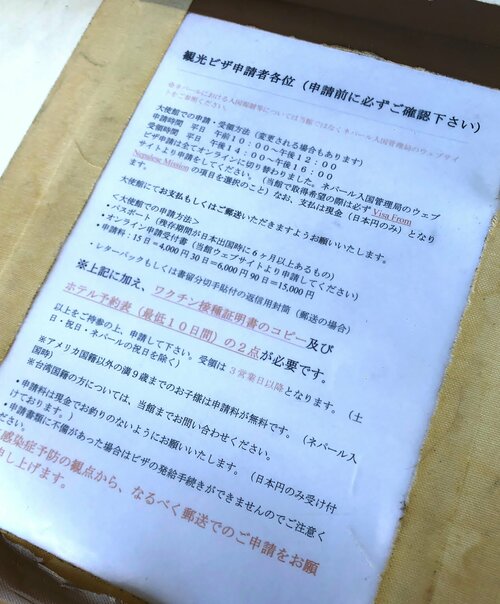 観光ビザ申請者各位（申請前に必ずご確認下さい）
※ネパールにおける入国規制等については当館ではなくネパール入国管理局のウェブサイ
トをご参照ください。
大使館での申請・受領方法（変更される場合もあります）
申請時間　平日　午前１０：００～午後１２：００
受領時間　平日　午後１４：００～午後１６：００
ビザ申請は全てオンラインに切り替わりました。ネパール入国管理局のウェブ
サイトより申請をしてください。（当館で取得希望の際は必ず Visa From
Nepalese Mission の項目を選択のこと）なお、支払は現金（日本円のみ）となり
ます。
大使館にてお支払もしくはご郵送いただきますようお願いいたします。
＜大使館での申請方法＞
・パスポート（残存期間が日本出国時に６ヶ月以上あるもの）
・オンライン申請受付書（当館ウェブサイトより申請してください）
・申請料：15 日＝4,000 円 30 日＝6,000 円 90 日＝15,000 円
・レターパックもしくは書留分切手貼付の返信用封筒（郵送の場合）
※上記に加え、ワクチン接種証明書のコピー及び
ホテル予約表（最低１０日間）の２点が必要です。
以上をご持参の上、申請して下さい。受領は 3 営業日以降となります。（土
日・祝日・ネパールの祝日を除く）
※アメリカ国籍以外の満９歳までのお子様は申請料が無料です。（ネパール入
国時）
※台湾国籍の方については、当館までお問い合わせください。
・申請料は現金でお釣りのないようにお願いいたします。（日本円のみ受け付
けております。）
・申請書類に不備があった場合はビザの発給手続きができませんのでご注意く
ださい。
感染症予防の観点から、なるべく郵送でのご申請をお願
申し上げます。